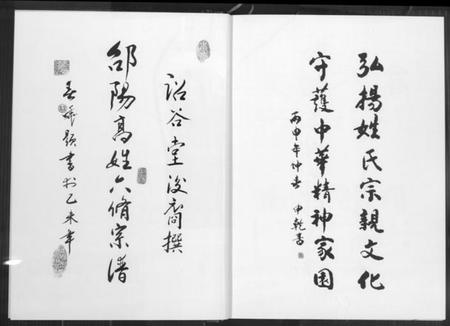 弘揚姓氏宗親文化
守護中華精神家园
丙申年仲春 申乾書
詒谷堂後裔撰
邵陽高姓六修宗譜
题書於乙未年